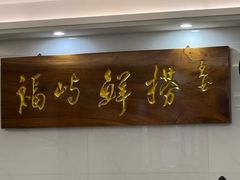 福屿鲜捞